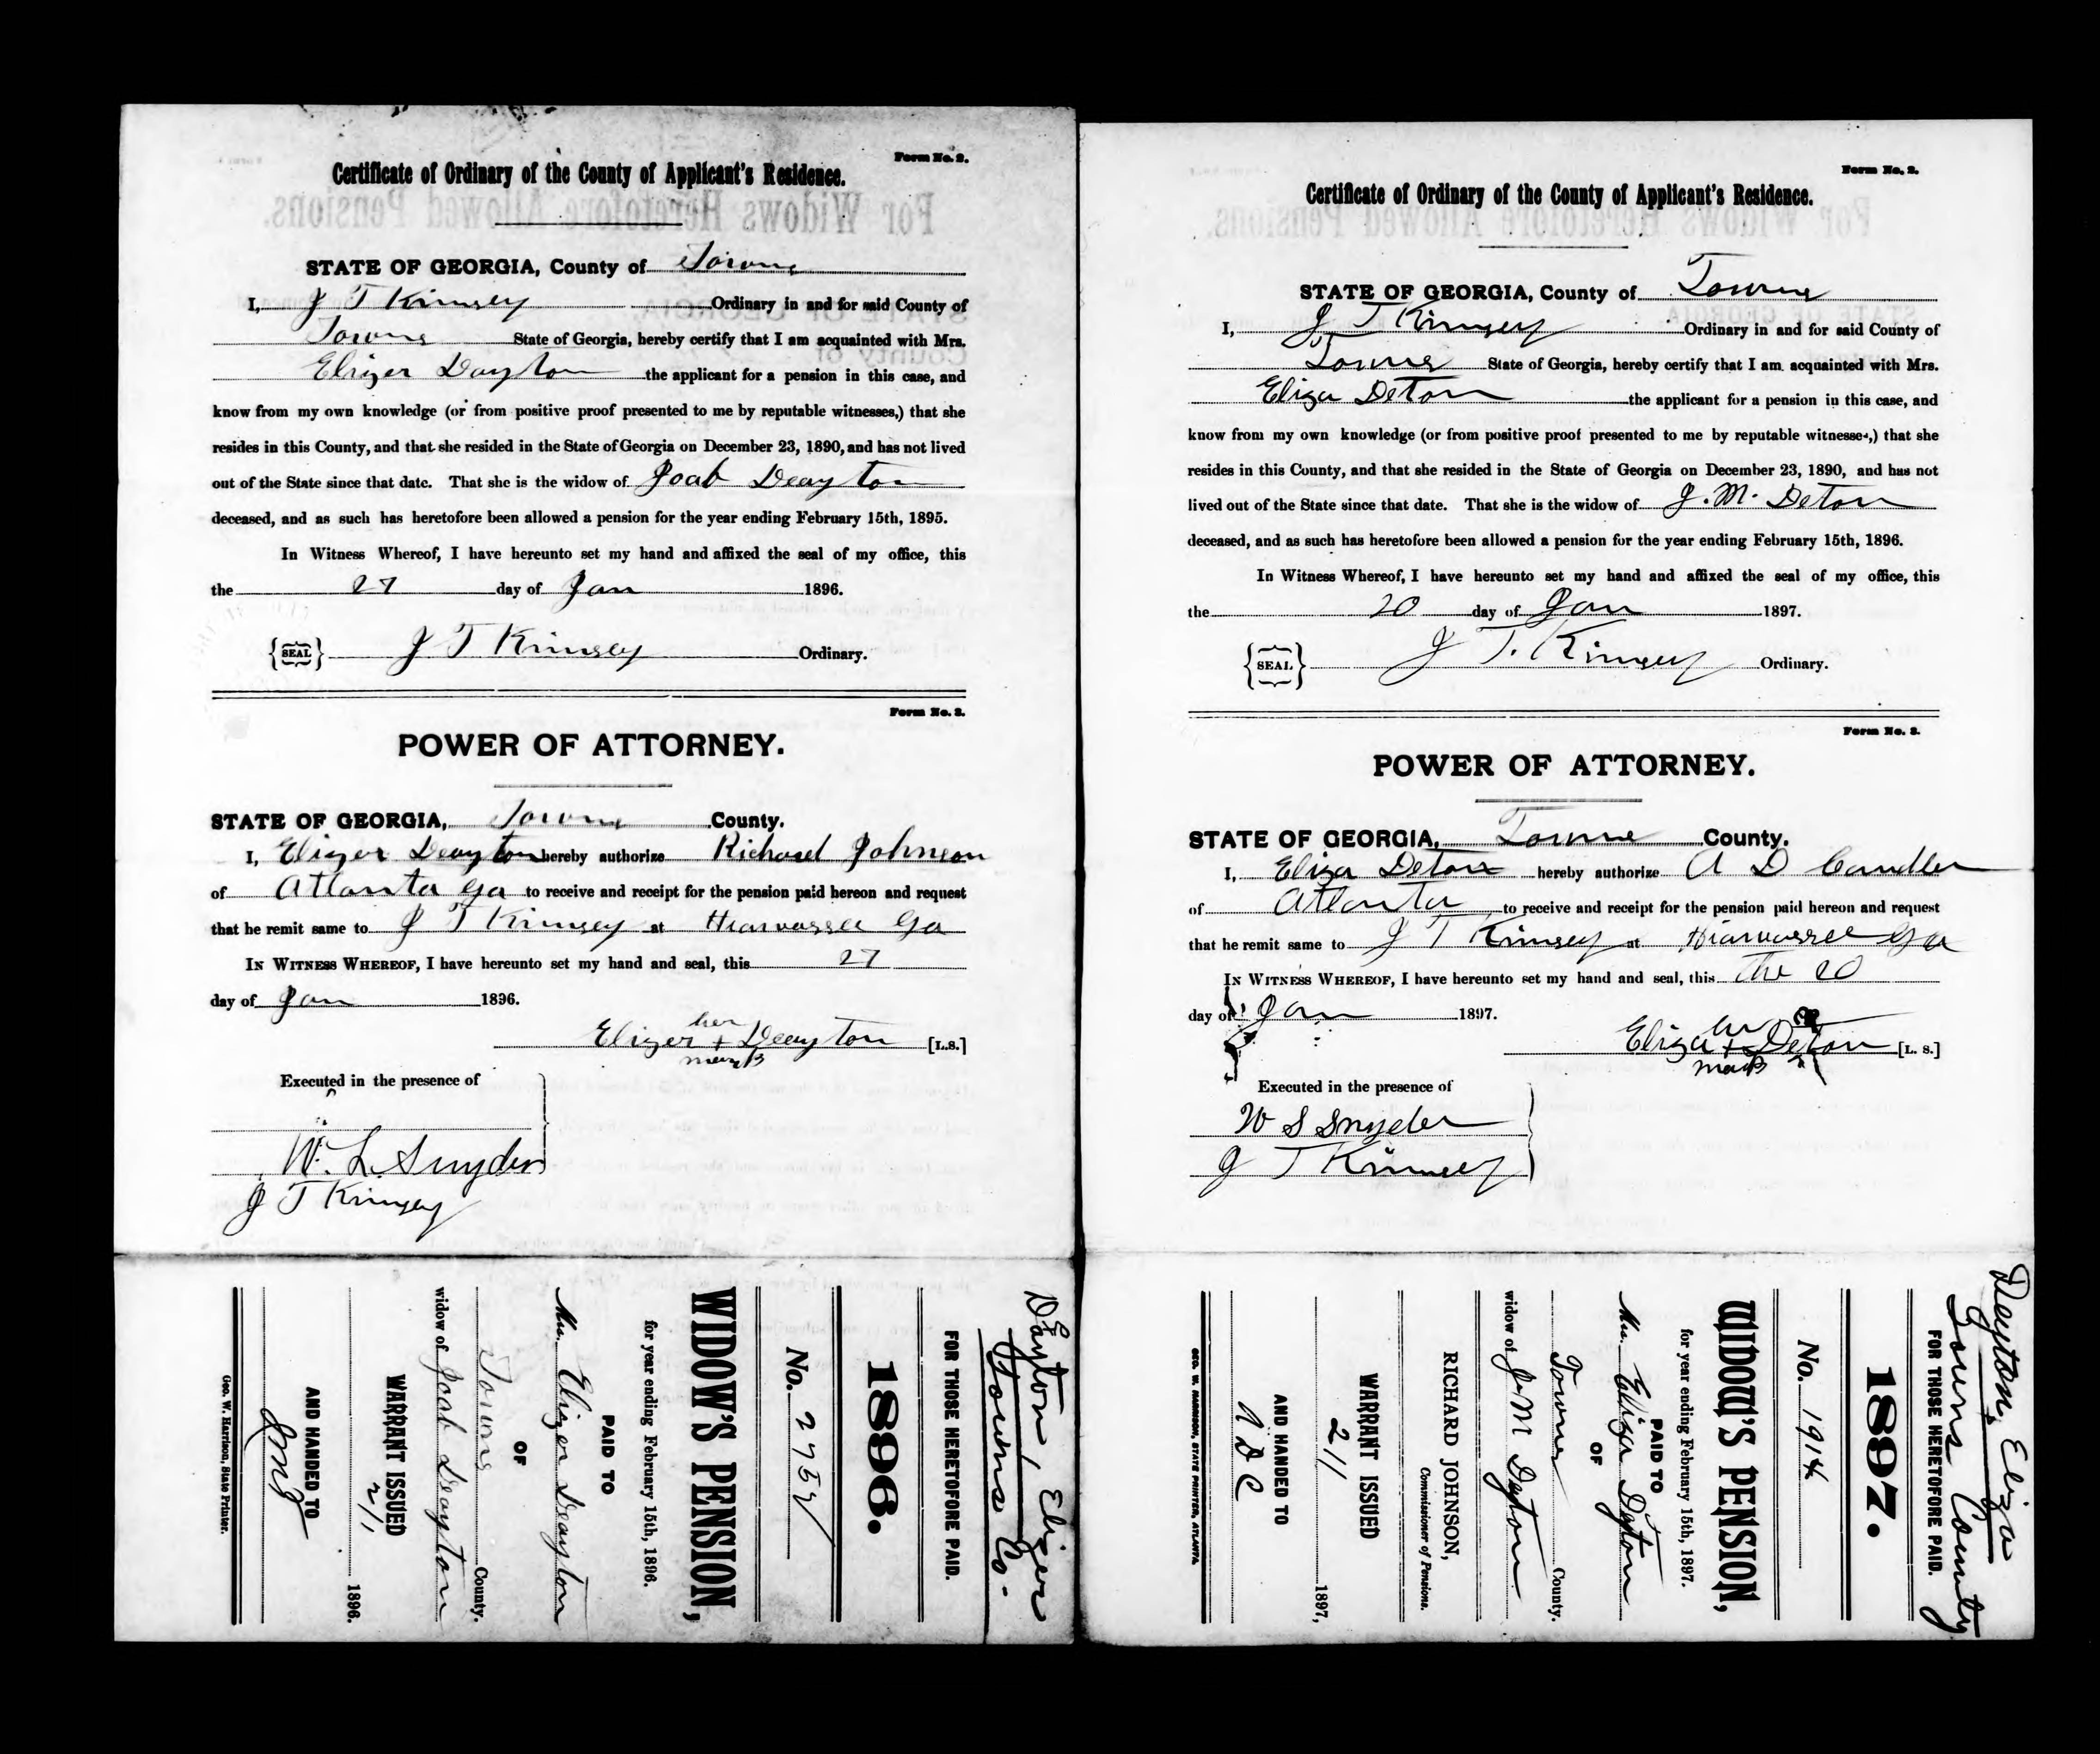 Form No. 2.
Certificate of Ordinary of the County of Applicant's Residence.
STATE OF GEORGIA, County of Towns
I, J T Kimsey Ordinary in and for said County of
Towns State of Georgia, hereby certify that I am acquainted with Mrs.
Elizer Dayton the applicant for a pension in this case, and
know from my own knowledge (or from positive proof presented to me by reputable witnesses,) that she
resides in this County, and that she resided in the State of Georgia on December 23, 1890, and has not lived
out of the State since that date. That she is the widow of Joab Deayton
deceased, and as such has heretofore been allowed a pension for the year ending February 15th, 1895.
In Witness Whereof, I have hereunto set my hand and affixed the seal of my office, this
the 27 day of Jan 1896.
{SEAL} J T Kimsey Ordinary.
Form No. 3.
POWER OF ATTORNEY.
STATE OF GEORGIA, Towns County.
I, Elizer Deayton hereby authorize Richard Johnson
of Atlanta Ga to receive and receipt for the pension paid hereon and request
that he remit same to J T Kimsey at Hiawassee Ga
IN WITNESS WHEREOF, I have hereunto set my hand and seal, this 27
day of Jan 1896.
her
Elizer + Deayton [L.S.]
mark
Executed in the presence of
W. L. Snyder
J T Kimsey
Dayton, Elizer
Towns Co.
FOR THOSE HERETOFORE PAID.
1896.
No.
WIDOW'S PENSION,
for year ending February 15th, 1896.
PAID TO
Mrs. Elizer Deayton
OF
Towns County.
widow of Joab Deayton
WARRANT ISSUED
2/1 1896.
AND HANDED TO
Geo. W. Harrison, State Printer.
Form No. 2.
Certificate of Ordinary of the County of Applicant's Residence.
STATE OF GEORGIA, County of Towns
I, J T Kimsey Ordinary in and for said County of
Towns State of Georgia, hereby certify that I am acquainted with Mrs.
Eliza Deton the applicant for a pension in this case, and
know from my own knowledge (or from positive proof presented to me by reputable witnesses,) that she
resides in this County, and that she resided in the State of Georgia on December 23, 1890, and has not
lived out of the State since that date. That she is the widow of J. M. Deton
deceased, and as such has heretofore been allowed a pension for the year ending February 15th, 1896.
In Witness Whereof, I have hereunto set my hand and affixed the seal of my office, this
the 20 day of Jan 1897.
{SEAL} J T. Kimsey Ordinary.
Form No. 3.
POWER OF ATTORNEY.
STATE OF GEORGIA, Towns County.
I, Eliza Deton hereby authorize A D Candler
of Atlanta to receive and receipt for the pension paid hereon and request
that he remit same to J T Kimsey at Hiawassee Ga
IN WITNESS WHEREOF, I have hereunto set my hand and seal, this the 20
day of Jan 1897.
her
Eliza + Deton [L. S.]
mark
Executed in the presence of
W S Snyder
J T Kimsey
Deyton, Eliza
Towns County
FOR THOSE HERETOFORE PAID.
1897.
No. 1914
WIDOW'S PENSION,
for year ending February 15th, 1897.
PAID TO
Mrs. Eliza Dayton
OF
Towns County.
widow of J M Dayton
RICHARD JOHNSON,
Commissioner of Pensions.
WARRANT ISSUED
2/1 1897,
AND HANDED TO
A D C
GEO. W. HARRISON, STATE PRINTER, ATLANTA.